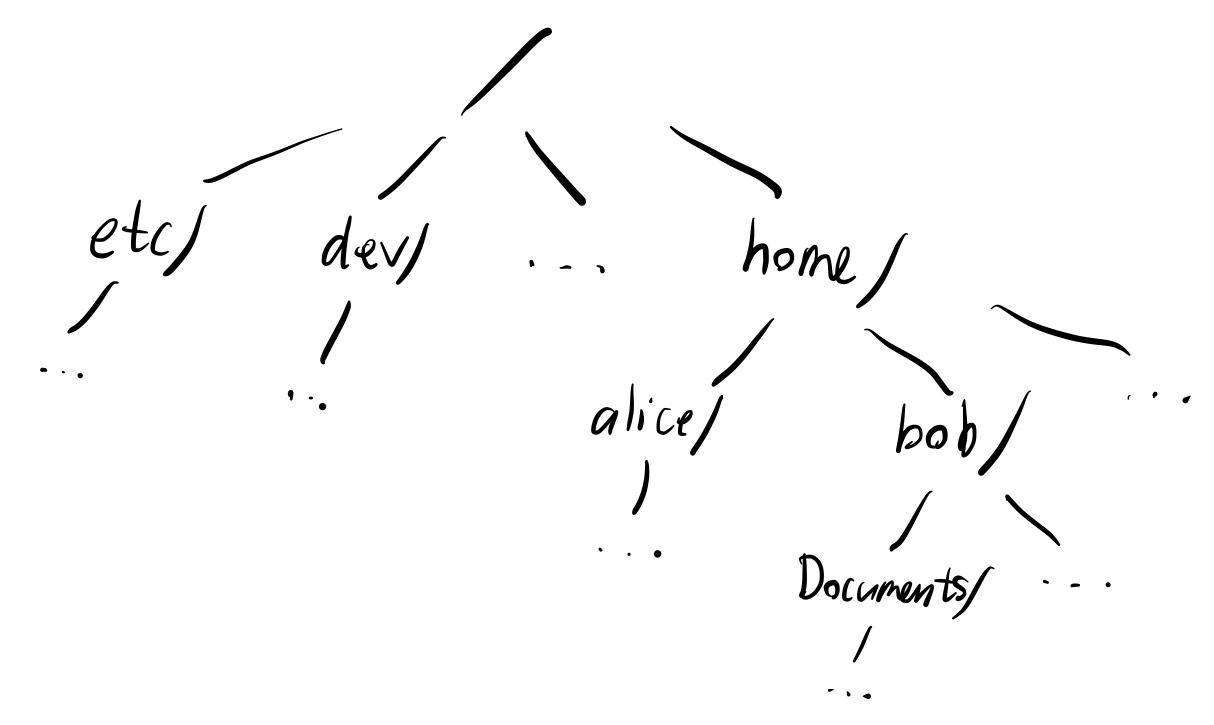 /
etc/ dev/ ... home/
... ... alice/ bob/ ...
... Documents/ ...
...